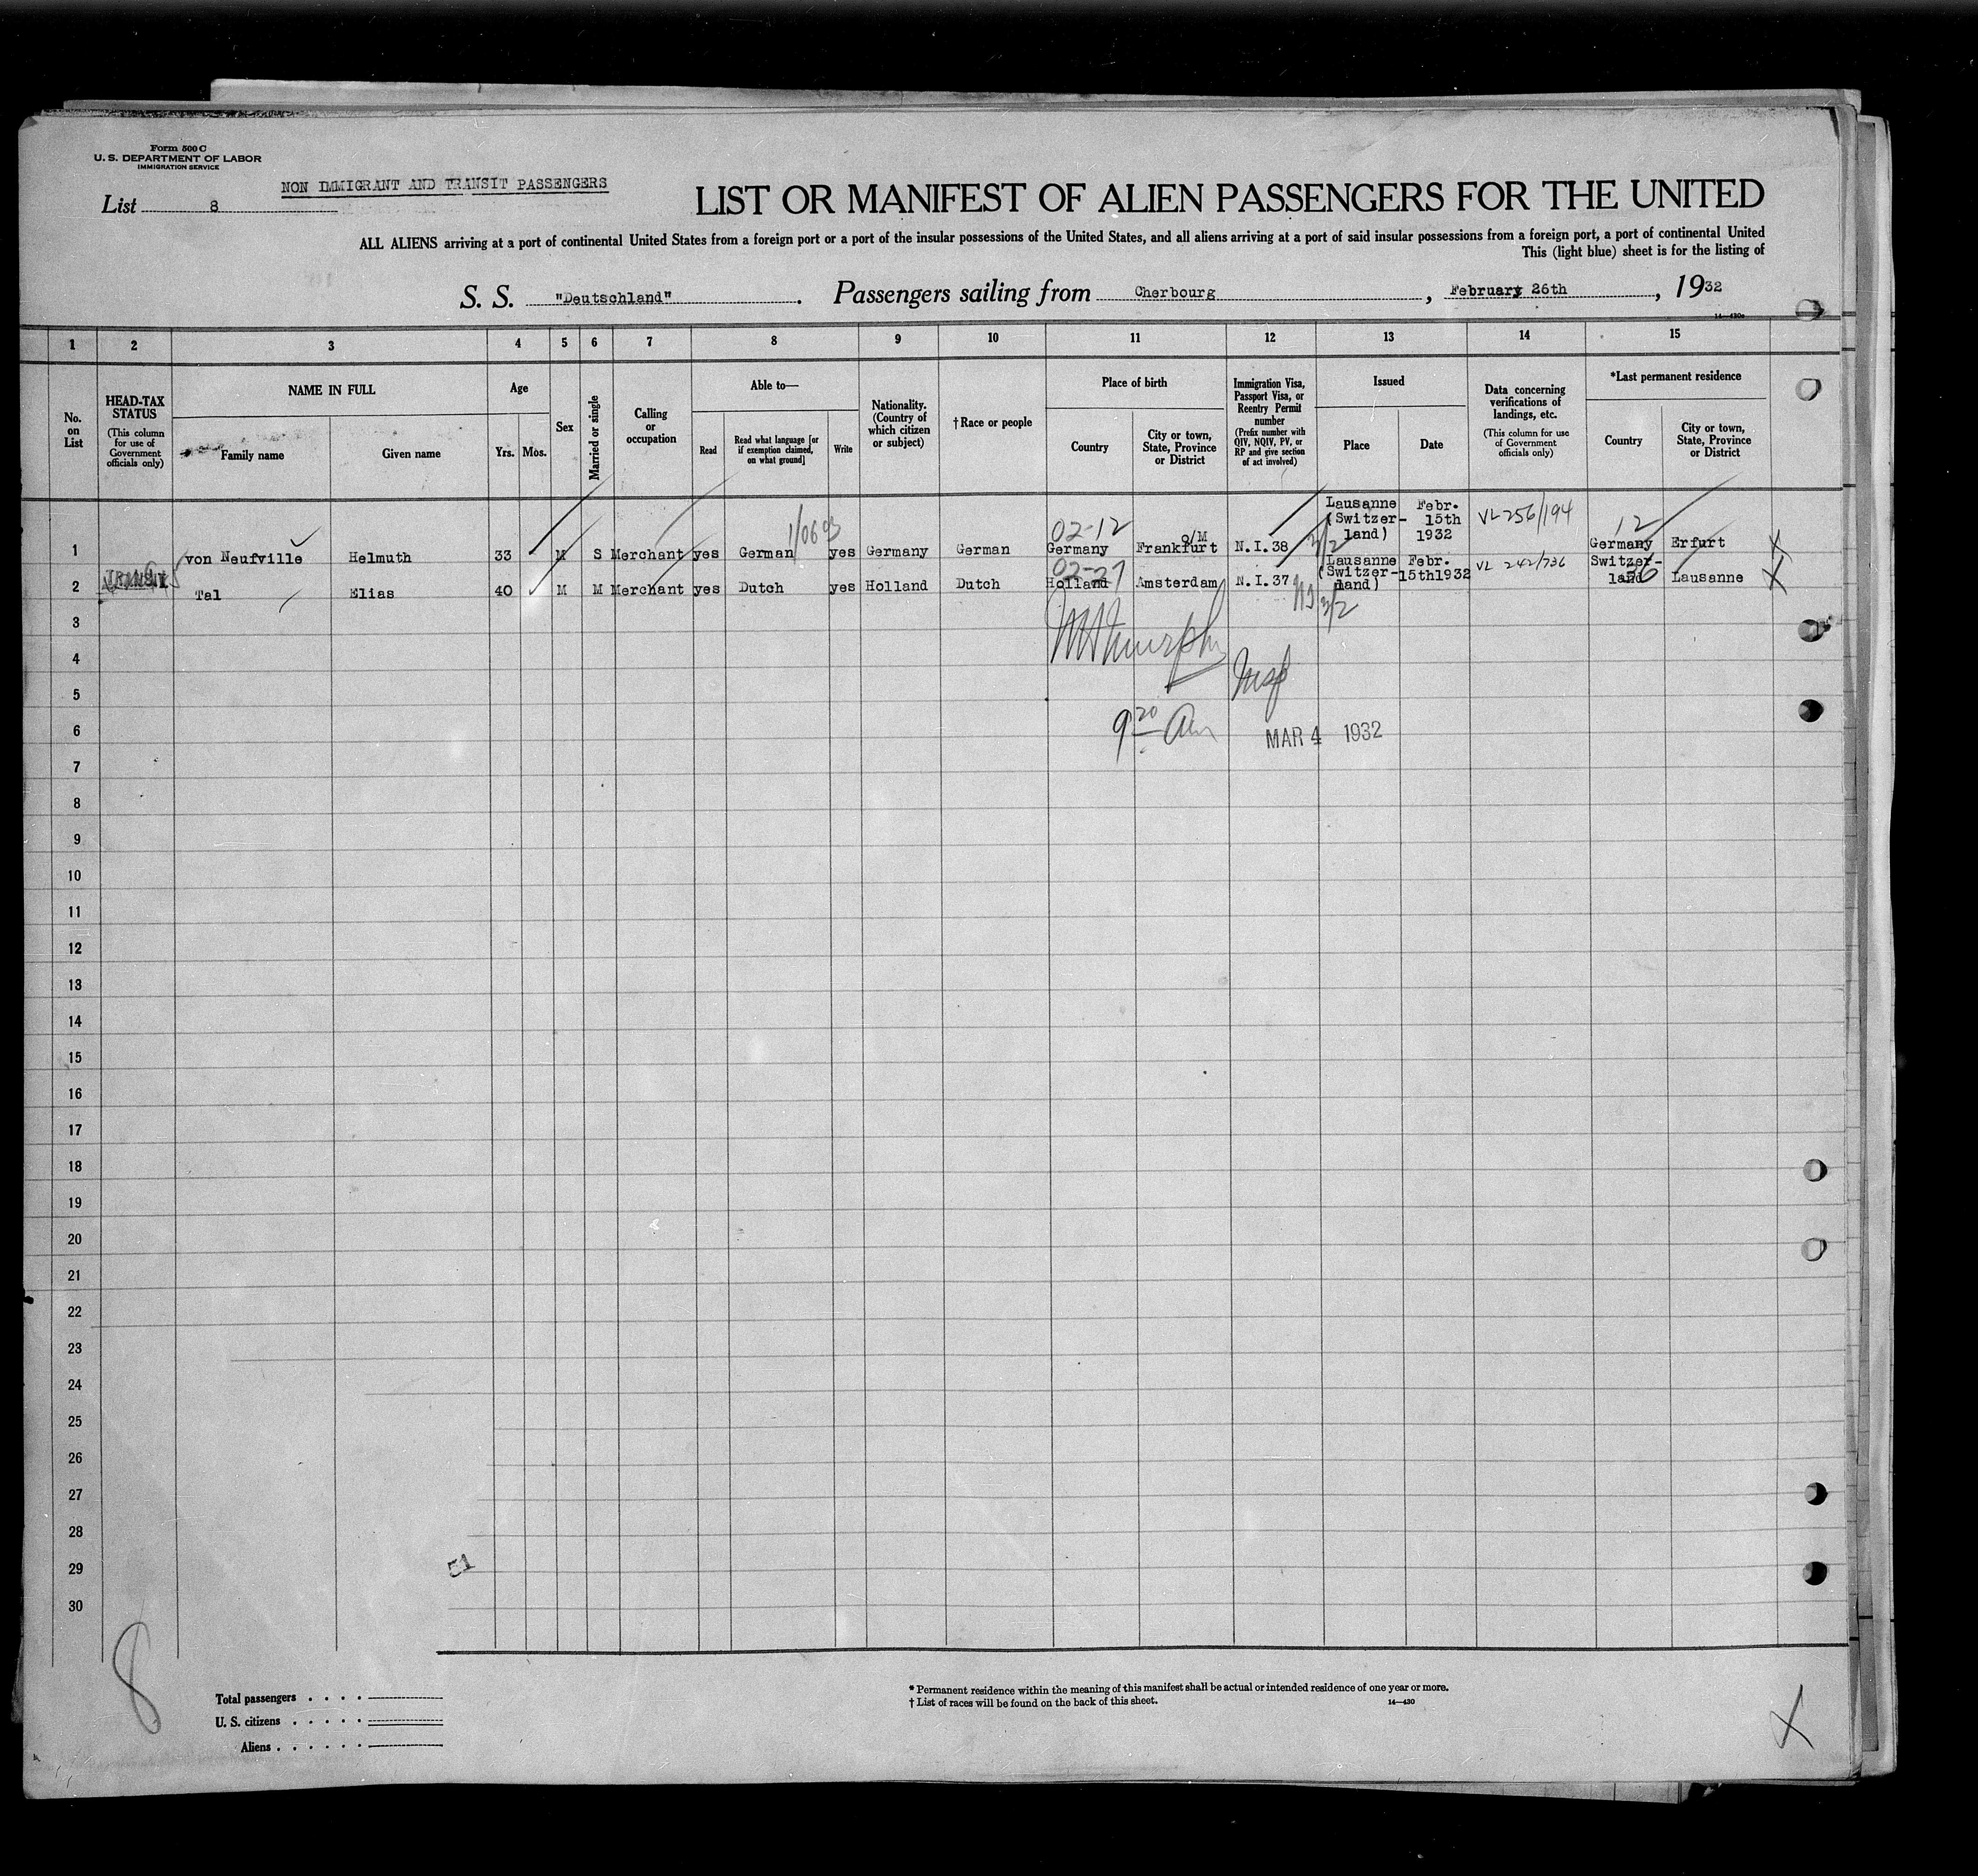 Form 500 C
U. S. DEPARTMENT OF LABOR
IMMIGRATION SERVICE
NON IMMIGRANT AND TRANSIT PASSENGERS
List 8
LIST OR MANIFEST OF ALIEN PASSENGERS FOR THE UNITED
ALL ALIENS arriving at a port of continental United States from a foreign port or a port of the insular possessions of the United States, and all aliens arriving at a port of said insular possessions from a foreign port, a port of continental United
This (light blue) sheet is for the listing of
S. S. "Deutschland". Passengers sailing from Cherbourg, February 26th, 1932
14—430c
1 2 3 4 5 6 7 8 9 10 11 12 13 14 15
No. on List
HEAD-TAX STATUS
(This column for use of Government officials only)
NAME IN FULL
Family name
Given name
Age
Yrs. Mos.
Sex
Married or single
Calling or occupation
Able to—
Read
Read what language [or if exemption claimed, on what ground]
Write
Nationality. (Country of which citizen or subject)
† Race or people
Place of birth
Country
City or town, State, Province or District
Immigration Visa, Passport Visa, or Reentry Permit number
(Prefix number with QIV, NQIV, PV, or RP and give section of act involved)
Issued
Place
Date
Data concerning verifications of landings, etc.
(This column for use of Government officials only)
*Last permanent residence
Country
City or town, State, Province or District
1 von Neufville Helmuth 33 M S Merchant yes German 1/0693 yes Germany German 02-12 Germany Frankfurt o/M N.I.38 3/2 Lausanne (Switzer-land) Febr. 15th 1932 VL 256/194 12 Germany Erfurt X
2 TRANSIT Tal Elias 40 M M Merchant yes Dutch yes Holland Dutch 02-27 Holland Amsterdam N.I.37 3/2 Lausanne (Switzer-land) Febr. 15th1932 VL 242/736 Switzer-land 36 Lausanne X
3
4 Insp
5
6 9 20 Am MAR 4 1932
7
8
9
10
11
12
13
14
15
16
17
18
19
20
21
22
23
24
25
26
27
28
29 51
30
8
Total passengers . . . .
U. S. citizens . . . . .
Aliens . . . . . .
* Permanent residence within the meaning of this manifest shall be actual or intended residence of one year or more.
† List of races will be found on the back of this sheet.
14—430
X